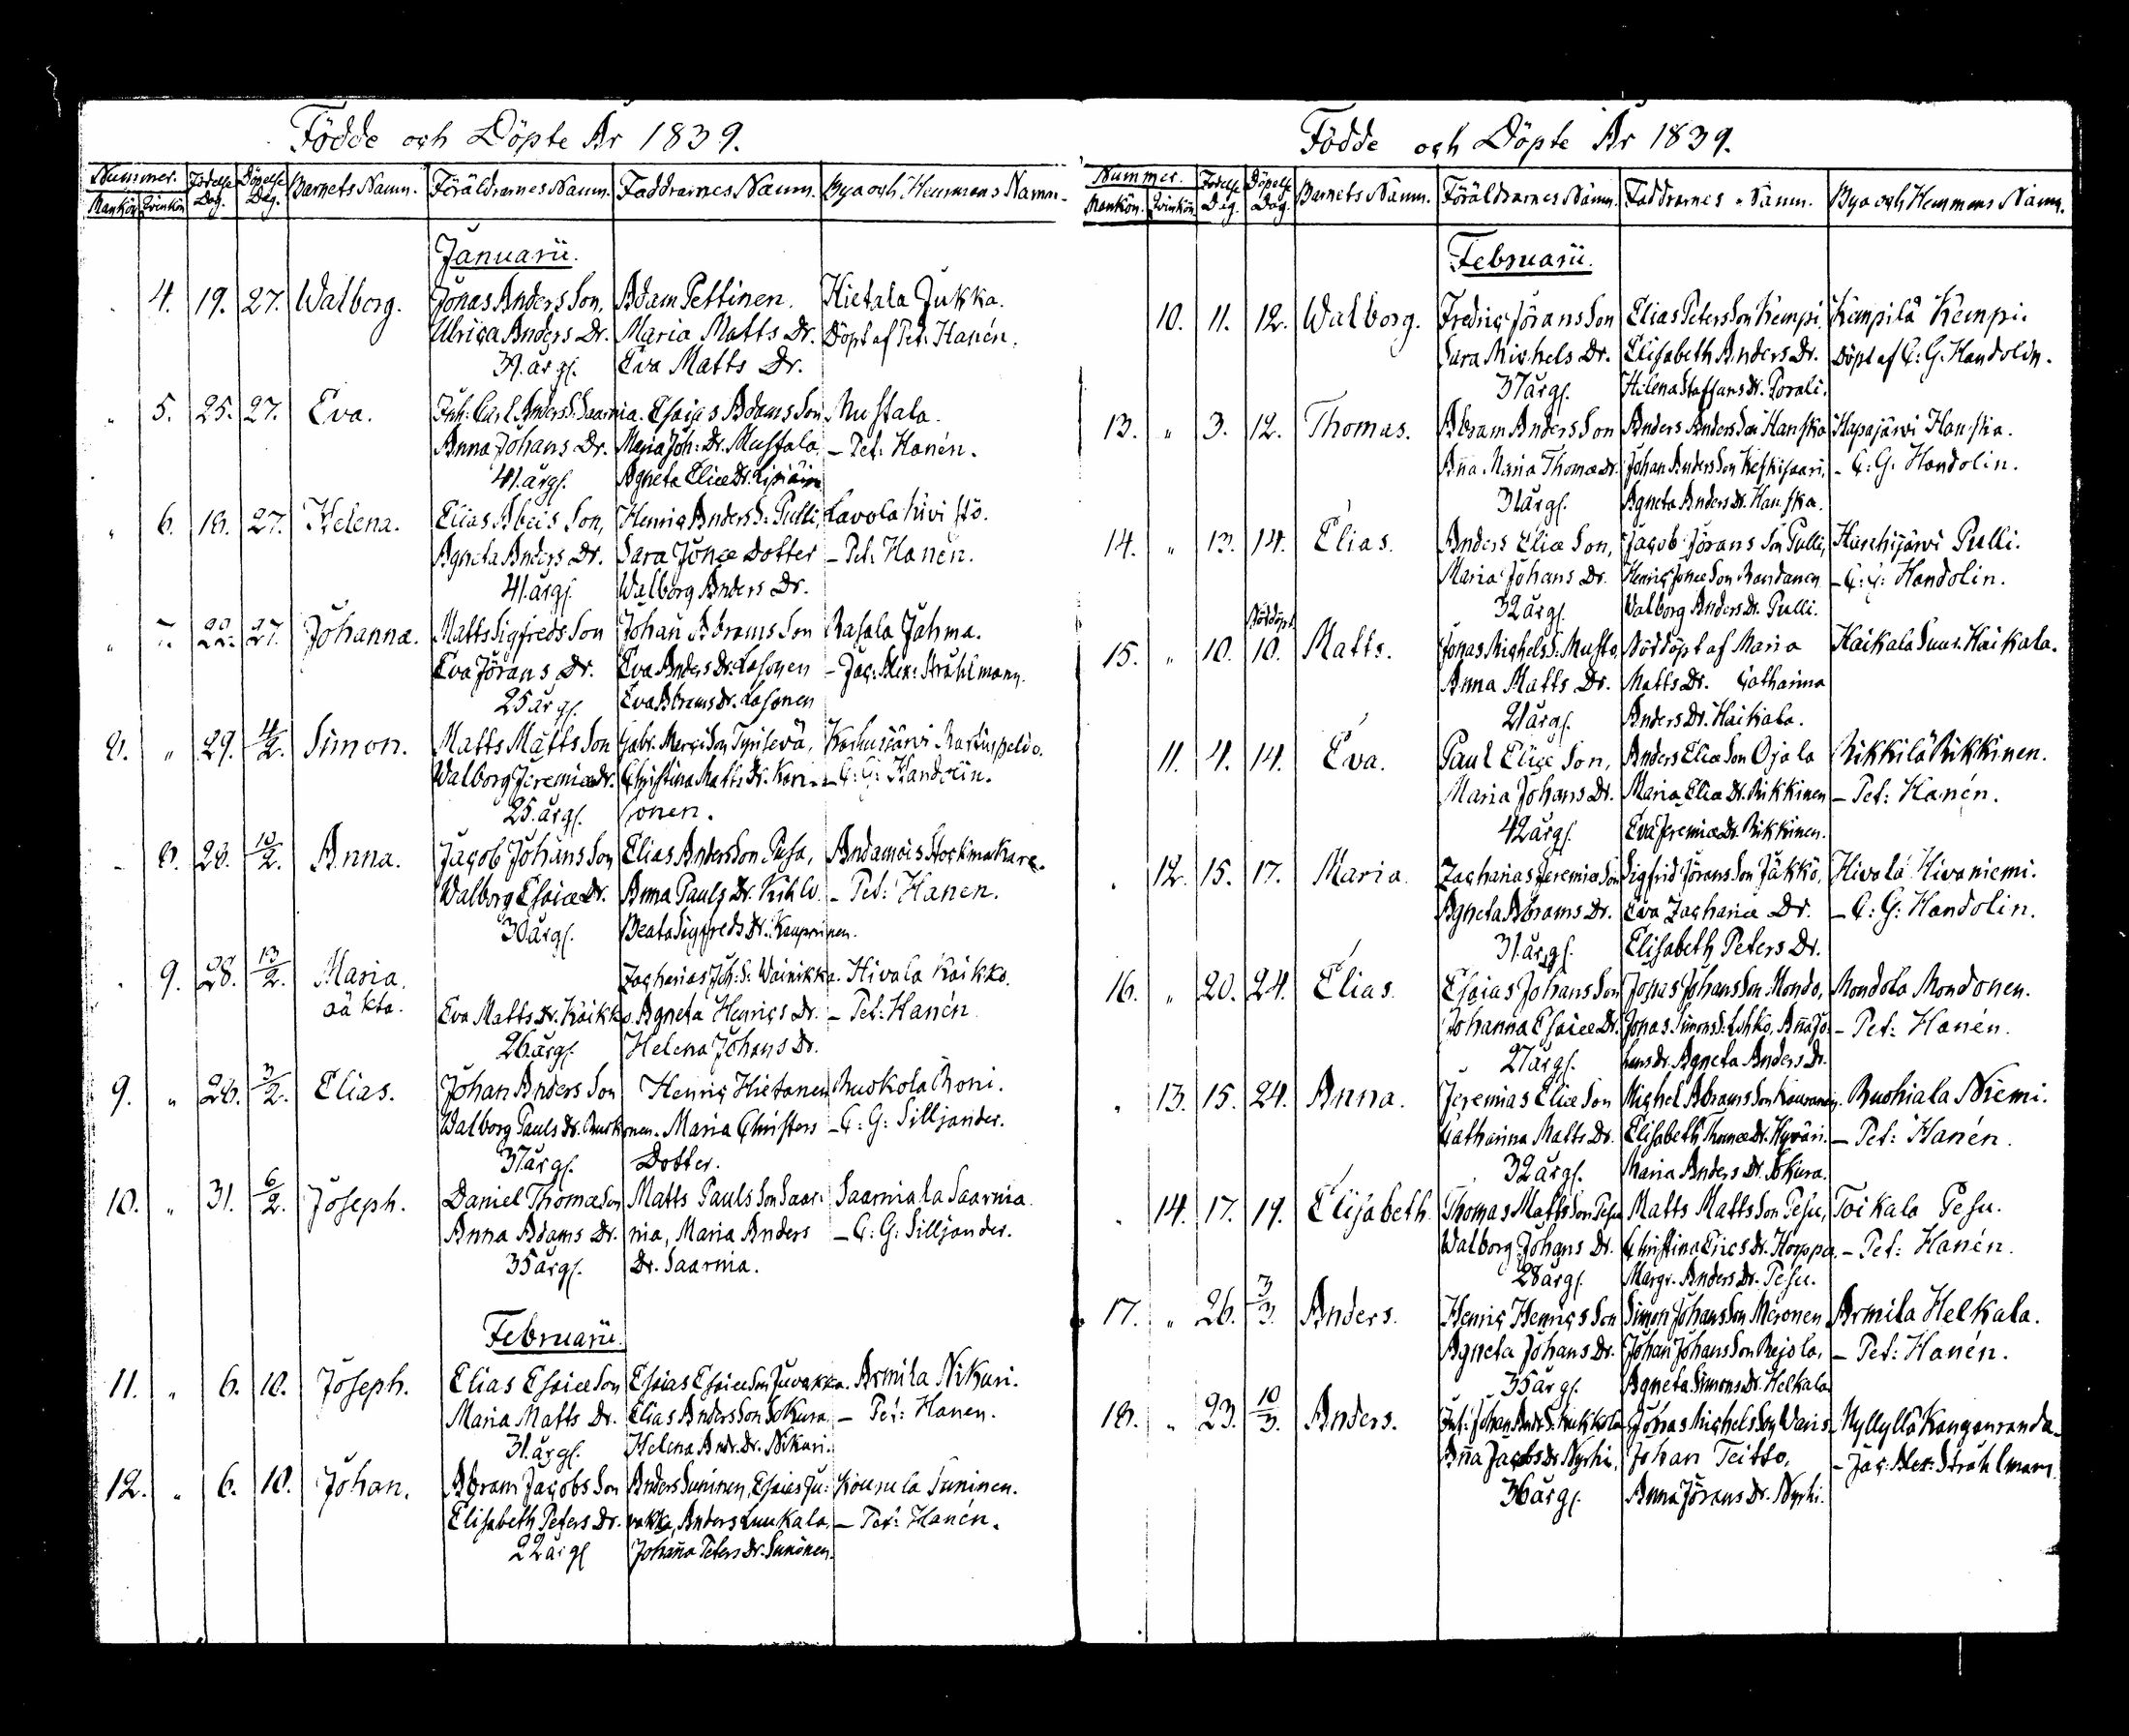 Födde och Döpte År 1839.
Nummer. Födelse Dag. Döpelse Dag. Barnets Namn. Föräldrarnes Namn. Faddrarnes Namn. Bya och Hemmans Namn.
Mankön. Qvinkön.
Januarii.
4. 19. 27. Walborg. Jonas Anders Son, Adam Pettinen. Hietala Jukka.
Ulrica Anders Dr. Maria Matts Dr. Döpt af Pet: Hanén.
39. årg. Eva Matts Dr.
" 5. 25. 27. Eva. Inh: Carl Anders S. Saarnia. Esaias Adams Son Mustala.
Anna Johans Dr. Maria Joh: Dr. Mustala, – Pet: Hanén.
41. årg. Agneta Eliæ Dr.
" 6. 18. 27. Helena. Elias Abeis Son, Henric Anders S: Pulli, Lavola Kivistö.
Agneta Anders Dr. Sara Jonæ Dotter – Pet: Hanén.
41. årg. Walborg Anders Dr.
" 7. 22. 27. Johanna. Matts Sigfreds Son Johan Abrams Son Rasala Jahma.
Eva Jörans Dr. Eva Anders Dr. Lasonen – Jac: Alex: Stråhlmann.
25 årg. Eva Abrams Dr. Lasonen
8. " 29. 4/2. Simon. Matts Matts Son Gabr. Merci Son Tyrisevä, Karhusjärvi Martuspeldo.
Walborg Jeremiæ Dr. Christina Matts Dr. Kor- – C: G: Handolin.
25. årg. sonen.
8. 28. 10/2. Anna. Jacob Johans Son Elias Anders Son Pusa, Andamois Stockmakare.
Walborg Esaiæ Dr. Anna Pauls Dr. – Pet: Hanén.
30 årg. Beata Sigfreds Dr. Kauppinen.
9. 28. 13/2. Maria. Zacharias Joh: S: Wainikka. Hivala Kaikko.
oäkta. Eva Matts Dr. Kaikko. Agneta Henrics Dr. – Pet: Hanén
26. årg. Helena Johans Dr.
9. " 28. 3/2. Elias. Johan Anders Son Henric Hietanen Ruokola Roni.
Walborg Pauls Dr. Ruokonen. Maria Christers – C: G: Silljander.
37. årg. Dotter.
10. " 31. 6/2. Joseph. Daniel Thomæ Son Matts Pauls Son Saar- Saarniala Saarnia
Anna Adams Dr. nia, Maria Anders – C: G: Silljander.
35 årg. Dr. Saarnia.
Februarii.
11. " 6. 10. Joseph. Elias Esaiæ Son Esaias Esaiæ Son Juvakka. Armila Nikuri.
Maria Matts Dr. Elias Anders Son Sokura – Pet: Hanén.
31. årg. Helena Andr. Dr. Nikuri.
12. " 6. 10. Johan. Abram Jacobs Son Anders Suninen, Esaias Ju- Kounola Suninen.
Elisabeth Peters Dr. vakka, Anders Luukala, – Pet: Hanén.
22 årg Johanna Peters Dr. Suninen.
Födde och Döpte År 1839.
Nummer. Födelse Dag. Döpelse Dag. Barnets Namn. Föräldrarnes Namn. Faddrarnes Namn. Bya och Hemmans Namn.
Mankön. Qvinkön.
Februarii.
10. 11. 12. Walborg. Fredric Jörans Son Elias Peters Son Kempi Kempilä Kempi.
Sara Michels Dr. Elisabeth Anders Dr. Döpt af C: G: Handolin.
37 årg. Helena Staffans Dr. Porali.
13. " 3. 12. Thomas. Abram Anders Son Anders Anders Son Hanska Hapajärvi Hanska.
Anna Maria Thomæ Dr. Johan Anders Son Keskisaari, – C: G: Handolin.
31 årg. Agneta Anders Dr. Hanska.
14. " 13. 14. Elias. Anders Eliæ Son, Jacob Jörans Son Pulli, Hurchijärvi Pulli.
Maria Johans Dr. Henric Jonæ Son Randanen – C: G: Handolin.
32 årg. Walborg Anders Dr. Pulli.
Nöddöpt
15. " 10. 10. Matts. Jonas Michels S: Musto, Nöddöpt af Maria Haikala Suur. Haikala.
Anna Matts Dr. Matts Dr. Catharina
21 årg. Anders Dr. Haikala.
11. 4. 14. Eva. Paul Eliæ Son, Anders Eliæ Son Ojala Rikkilä Rikkinen.
Maria Johans Dr. Maria Eliæ Dr. Rikkinen – Pet: Hanén.
42 årg. Eva Jeremiæ Dr. Rikkinen.
12. 15. 17. Maria. Zacharias Jeremiæ Son Sigfrid Jörans Son Jäkkö, Hivala Hivaniemi.
Agneta Abrams Dr. Eva Zachariæ Dr. – C: G: Handolin.
31. årg. Elisabeth Peters Dr.
16. " 20. 24. Elias. Esaias Johans Son Jonas Johans Son Mondo, Mondola Mondonen.
Johanna Esaiæ Dr. Jonas Simons S: Lohko, Anna Jo- – Pet: Hanén.
27 årg. hans Dr. Agneta Anders Dr.
" 13. 15. 24. Anna. Jeremias Eliæ Son Michel Abrams Son Kauranen. Ruohiala Niemi.
Catharina Matts Dr. Elisabeth Thomæ Dr. Hyväri. – Pet: Hanén.
32 årg. Maria Anders Dr. Sokura.
14. 17. 19. Elisabeth. Thomas Matts Son Pesu Matts Matts Son Pesu, Toikala Pesu.
Walborg Johans Dr. Christina Erics Dr. Horppa. – Pet: Hanén.
28 årg. Margr. Anders Dr. Pesu.
17. " 26. 3/3. Anders. Henric Henrics Son Simon Johans Son Meronen Armila Helkala.
Agneta Johans Dr. Johan Johans Son Rejola, – Pet: Hanén.
35 årg. Agneta Simons Dr. Helkala
18. " 23. 10/3. Anders. Inh: Johan Andr. S. Kukkola Johas Michels Son Varis Myllylä Kangasranda.
Anna Jacobs Dr Nyrhi, Johan Teitto, – Jac: Alex: Stråhlmann.
36 årg. Anna Jörans Dr. Nyrhi.